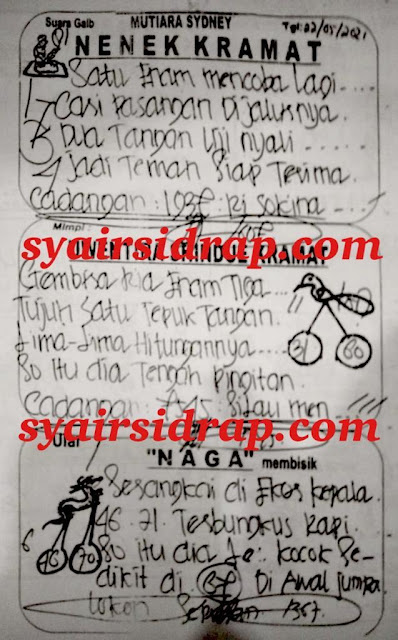 Suara Gaib MUTIARA SYDNEY Tgl: 02/05/2021
NENEK KRAMAT
Satu Enam mencoba lagi....
Cari Pasangan Dijalurnya.
Dua Tangan Uji nyali ......
Jadi Teman Siap Terima.
Cadangan : 193
Mimpi :
syairsidrap.com
KRAMAT
Gembira Ria Enam Tiga...
Tujuh Satu Tepuk Tangan.
Lima-Lima Hitungannya....
31 80
80 itu dia Tengah Pingitan.
Cadangan : 7545
syairsidrap.com
Ular
"NAGA" membisik
di Ekor kepala.
46. 71. Terbungkus Rapi.
6 46 70
80 itu dia Kocok Se-
dikit di Di Awal Jumpa.
1367